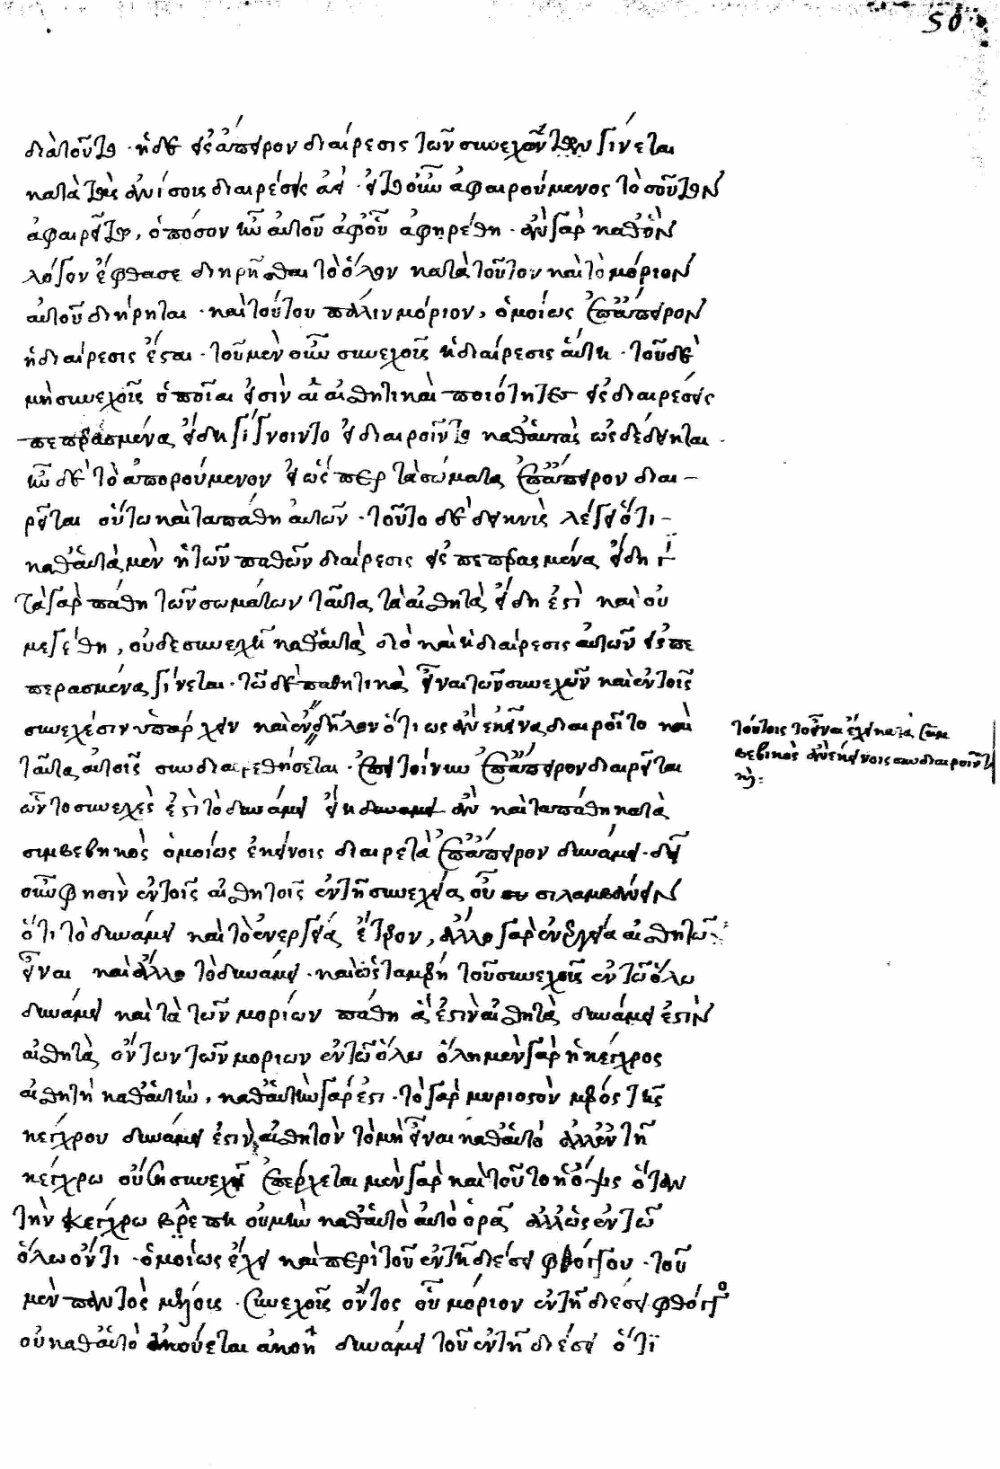 50
διὰ τοῦτο · ἡ δὲ εἰς ἄπειρον διαίρεσις τῶν συνεχῶν γίνεται
κατὰ τὰς ἀνίσους διαιρέσεις ἀεὶ · οὖν ἀφαιρούμενος τοσοῦτον
ἀφαιρεῖται, ὁπόσον τῶ αὐτοῦ ἀφ' οὗ ἀφηρέθη · ἀν γὰρ καθ' ὃν
λόγον ἔφθασε διηρῆσθαι τὸ ὅλον κατὰ τοῦτον καὶ τὸ μόριον
αὐτοῦ διήρηται · καὶ τούτου πάλιν μόριον, ὁμοίως ἐπ' ἄπειρον
ἡ διαίρεσις ἔσται · τοῦ μὲν οὖν συνεχοῦς ἡ διαίρεσις αὕτη · τοῦ δὲ
μὴ συνεχοῦς ὁποῖαι εἰσὶν αἱ αἰσθητικαὶ ποιότητες εἰς διαιρέσεις
πεπερασμένα εἴδη γίγνοιντο εἰ διαιροῖντο καθ' αὑτὰς ὡς δέδεικται ·
τῶ δὲ τὸ ἀπορούμενον εἰ ὥσπερ τὰ σώματα ἐπ' ἄπειρον διαι-
ρεῖται οὕτω καὶ τὰ πάθη αὐτῶν · τοῦτο δὲ δεικνὺς λέγει ὅτι
καθ' αὑτὰ μὲν ἡ τῶν παθῶν διαίρεσις εἰς πεπερασμένα εἴδη
τὰ γὰρ πάθη τῶν σωμάτων ταῦτα τὰ αἰσθητὰ εἴδη ἐστὶ καὶ οὐ
μεγέθη, οὐδὲ συνεχῆ καθ' αὑτὰ διὸ καὶ ἡ διαίρεσις αὐτῶν εἰς πε
περασμένα γίνεται · τῶ δὲ παθητικὰ εἶναι τῶν συνεχῶν καὶ ἐν τοῖς
συνεχέσιν ὑπάρχειν καὶ ἐν δῆλον ὅτι ὡς ἂν ἐκεῖνα διαιροῖτο καὶ
ταῦτα αὐτοῖς συνδιαιρεθήσεται · ἐπεὶ τοίνυν ἐπ' ἄπειρον διαιρεῖται
ὧν τὸ συνεχὲς ἐστὶ τὸ δυνάμει εἴη δυνάμει ἂν καὶ τὰ πάθη κατὰ
συμβεβηκὸς ὁμοίως ἐκείνοις διαιρετὰ ἐπ' ἄπειρον δυνάμει · δεῖ
οὖν φησὶν ἐν τοῖς αἰσθητοῖς ἐν τῆ συνεχεία οὖ συλαμβάνειν
ὅτι τὸ δυνάμει καὶ τὸ ἐνεργεία ἕτερον, ἄλλο γὰρ ἐνεργεία αἰσθητὸν
εἶναι καὶ ἄλλο τὸ δυνάμει · καὶ ὡς τὰ μέρη τοῦ συνεχοῦς ἐν τῶ ὅλω
δυνάμει καὶ τὰ τῶν μορίων πάθη ἅ ἐστὶν αἰσθητὰ δυνάμει ἐστὶν
αἰσθητὰ ὄντων τῶν μορίων ἐν τῶ ὅλω ὅλη μὲν γὰρ ἡ κέγχρος
αἰσθητὴ καθ' αὑτὴν, καθ' αὑτὴν γάρ ἐστι · τὸ γὰρ μυριοστὸν μέρος τῆς
κέγχρου δυνάμει ἐστὶν αἰσθητὸν τὸ μὴ εἶναι καθ' αὑτὸ ἀλλ' ἐν τῆ
κέγχρω οὔση συνεχῆ ἐπέρχεται μὲν γὰρ καὶ τοῦτο ἡ ὄψις ὅταν
τὴν κέγχρω βλέπη οὐ μὴν καθ' αὑτὸ αὐτὸ ὁρᾶ ἀλλ' ὡς ἐν τῶ
ὅλω ὄντι · ὁμοίως ἔχει καὶ περὶ τοῦ ἐν τῆ διέσει φθόγγου · τοῦ
μὲν παντὸς μέλους · συνεχοῦς ὄντος οὗ μόριον ἐν τῆ διέσει φθόγγος
οὐ καθ' αὑτὸ ἀκούεται ἀκοῆ δυνάμει τοῦ ἐν τῆ διέσει ὅτι
τούτοις τὸ εἶναι ἔχει κατὰ συμ
βεβηκὸς ἂν ἐκείνοις συνδιαιροῖντο